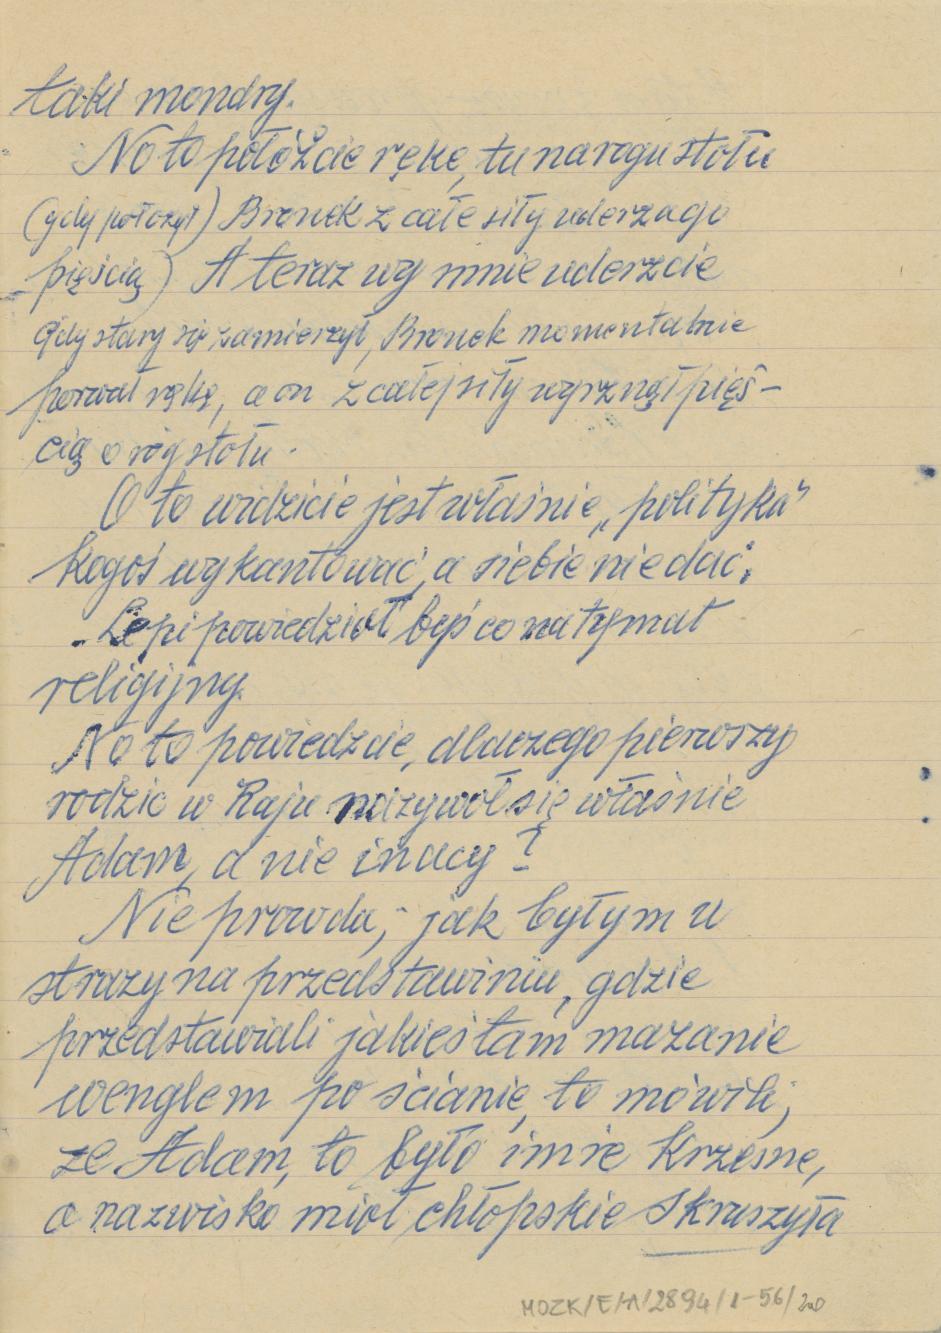 taki mondry.
No to połóżcie rękę, tu na rogu stołu
(gdy położył) Bronek z całe siły uderza go
pięścią) A teraz wy mnie uderzcie
Gdy stary się zamierzył, Bronek momentalnie
porwał rękę, a on z całej siły wyrznął pięś-
cią o róg stołu.
O to widzicie jest właśnie „polityka"
kogoś wykantować, a siebie nie dać.
- Lepi powiedział byś co na tymat
religijny.
No to powiedzcie, dlaczego pierwszy
rodzic w Raju nazywoł się właśnie
Adam, a nie inacy?
Nie prowda, jak byłym u
strazy na przedstawiniu, gdzie
przedstawiali jakieś tam mazanie
wenglem po ścianie, to mówili,
ze Adam, to było imie Krzesne,
a nazwisko mioł chłopskie Skruszyła
MOZK/E/A/2894/1-56/